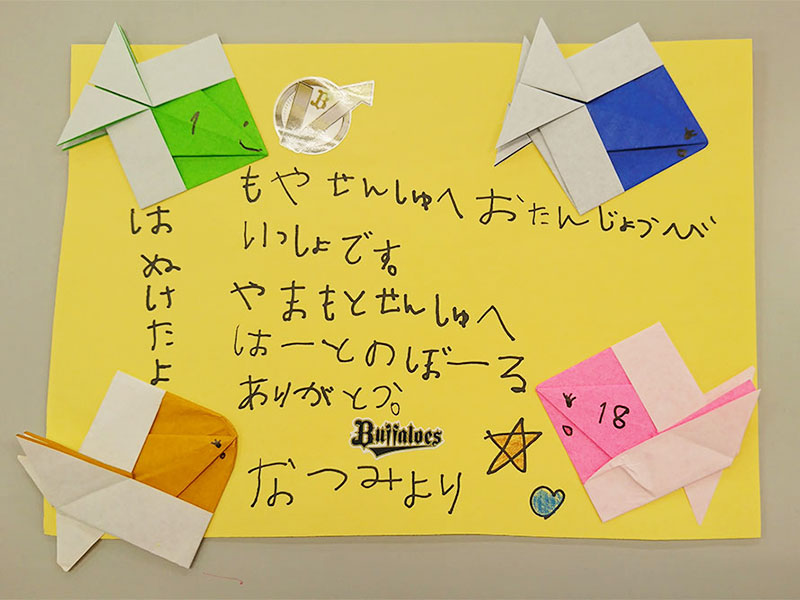 1
B
もやせんしゅへ おたんじょうべび
いっしょです。
やまもとせんしゅへ
はーとのぼーる
ありがとう。
はぬけたよ
Buffaloes
18
なつみより